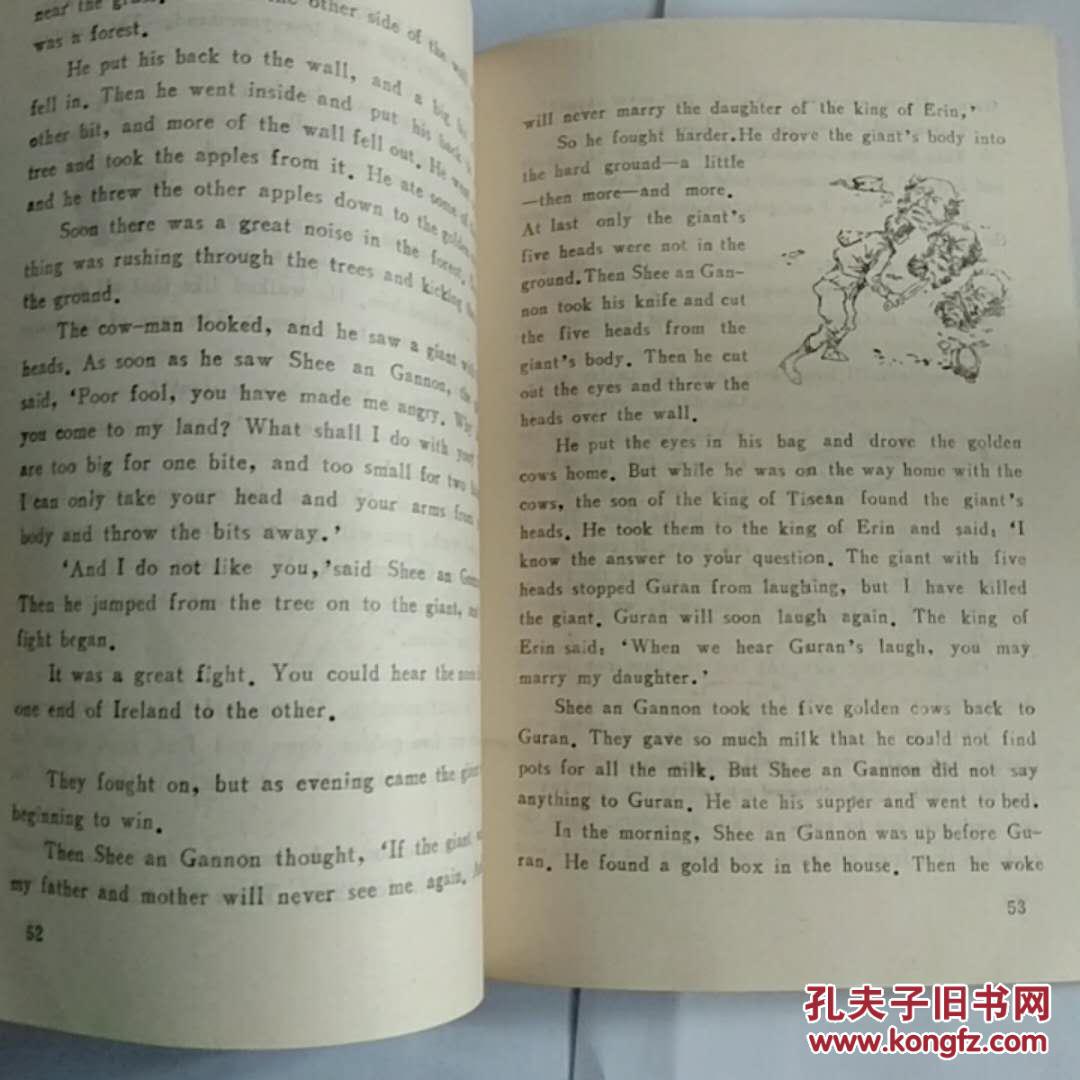 near the
other side of the wall
was a forest.
He put his back to the wall, and a big bit
fell in. Then he went inside and put his back to
other bit, and more of the wall fell out. He went
tree and took the apples from it. He ate some of
and he threw the other apples down to the golden
Soon there was a great noise in the forest.
thing was rushing through the trees and kicking
the ground.
The cow-man looked, and he saw a giant with
heads. As soon as he saw Shee an Gannon, the
said, ‘Poor fool, you have made me angry. Why
you come to my land? What shall I do with you?
are too big for one bite, and too small for two
I can only take your head and your arms from
body and throw the bits away.’
‘And I do not like you,’said Shee an
Then he jumped from the tree on to the giant,
fight began.
It was a great fight. You could hear the
one end of Ireland to the other.
They fought on, but as evening came the giant
beginning to win.
Then Shee an Gannon thought, ‘If the giant
my father and mother will never see me again.
52
will never marry the daughter of the king of Erin,’
So he fought harder.He drove the giant’s body into
the hard ground—a little
—then more—and more.
At last only the giant’s
five heads were not in the
ground.Then Shee an Gan-
non took his knife and cut
the five heads from the
giant’s body. Then he cut
out the eyes and threw the
heads over the wall.
He put the eyes in his bag and drove the golden
cows home. But while he was on the way home with the
cows, the son of the king of Tisean found the giant’s
heads. He took them to the king of Erin and said: ‘I
know the answer to your question. The giant with five
heads stopped Guran from laughing, but I have killed
the giant. Guran will soon laugh again. The king of
Erin said: ‘When we hear Guran’s laugh, you may
marry my daughter.’
Shee an Gannon took the five golden cows back to
Guran. They gave so much milk that he could not find
pots for all the milk. But Shee an Gannon did not say
anything to Guran. He ate his supper and went to bed.
In the morning, Shee an Gannon was up before Gu-
ran. He found a gold box in the house. Then he woke
53
孔夫子旧书网
www.kongfz.com